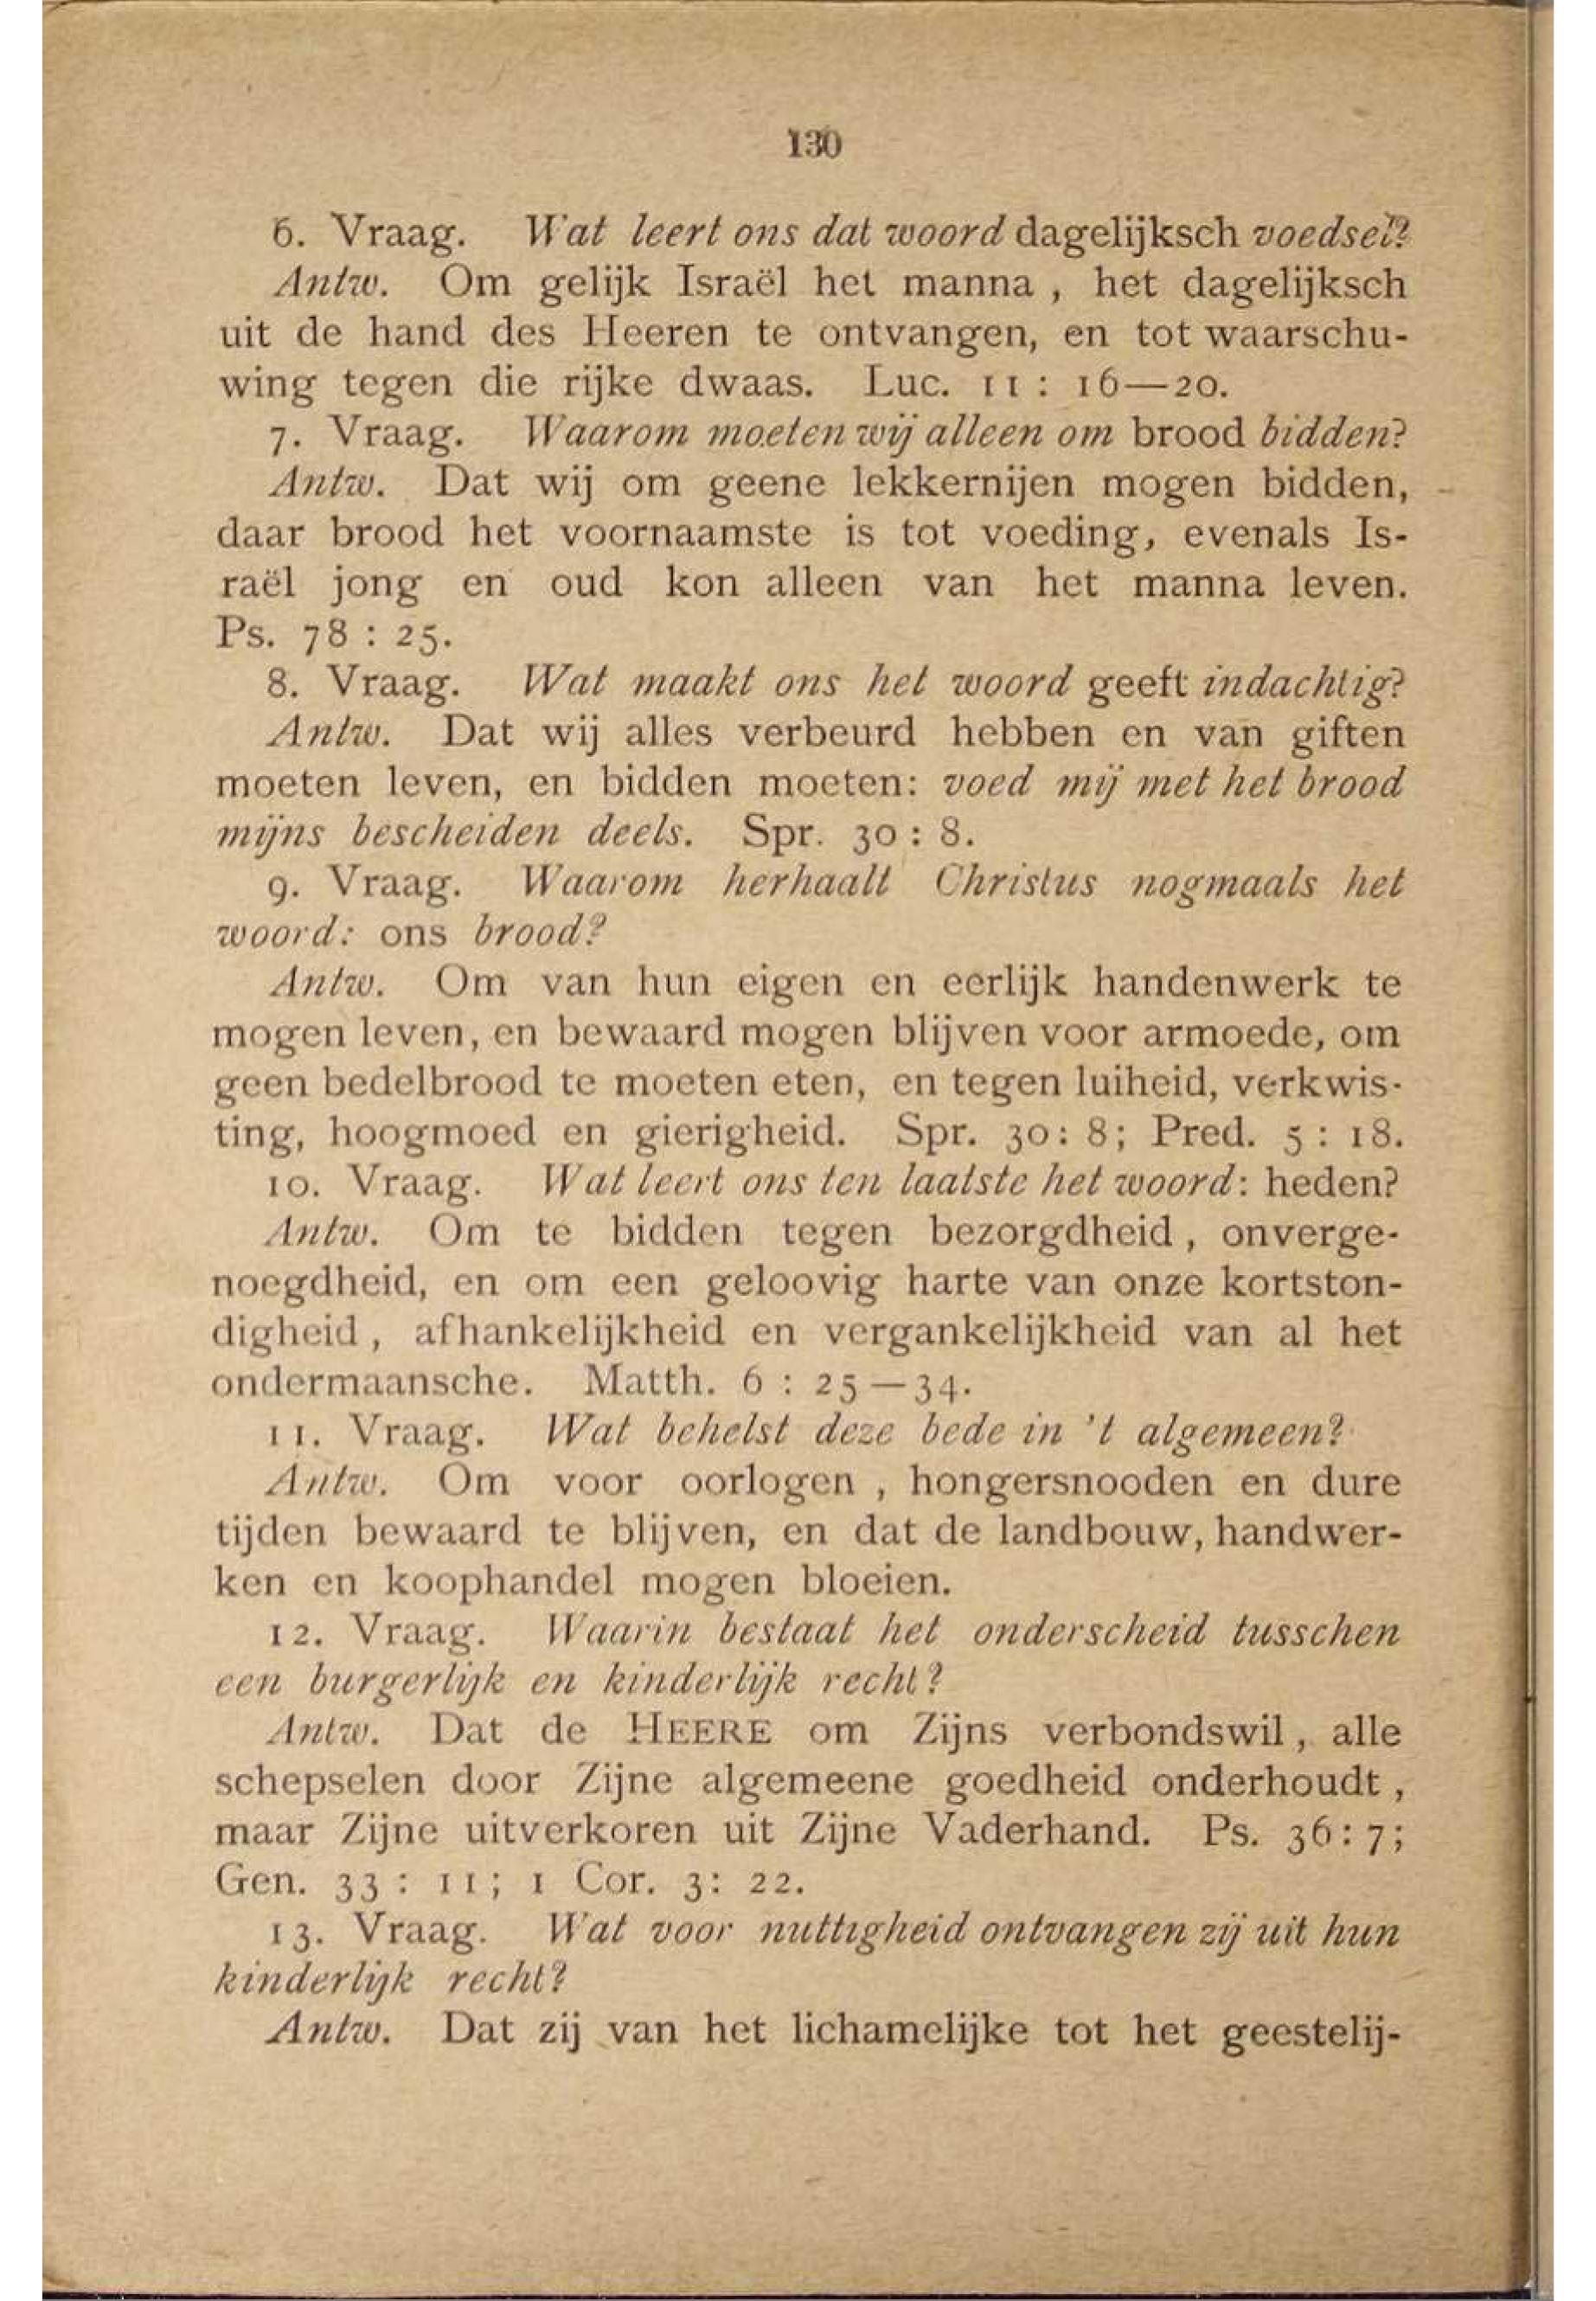 130
6. Vraag. Wat leert ons dat woord dagelijksch voedsel?
Antw. Om gelijk Israël het manna, het dagelijksch
uit de hand des Heeren te ontvangen, en tot waarschu-
wing tegen die rijke dwaas. Luc. 11 : 16—20.
7. Vraag. Waarom moeten wij alleen om brood bidden?
Antw. Dat wij om geene lekkernijen mogen bidden,
daar brood het voornaamste is tot voeding, evenals Is-
raël jong en oud kon alleen van het manna leven.
Ps. 78 : 25.
8. Vraag. Wat maakt ons het woord geeft indachtig?
Antw. Dat wij alles verbeurd hebben en van giften
moeten leven, en bidden moeten: voed mij met het brood
mijns bescheiden deels. Spr. 30 : 8.
9. Vraag. Waarom herhaalt Christus nogmaals het
woord: ons brood?
Antw. Om van hun eigen en eerlijk handenwerk te
mogen leven, en bewaard mogen blijven voor armoede, om
geen bedelbrood te moeten eten, en tegen luiheid, verkwis-
ting, hoogmoed en gierigheid. Spr. 30: 8; Pred. 5 : 18.
10. Vraag. Wat leert ons ten laatste het woord: heden?
Antw. Om te bidden tegen bezorgdheid, onverge-
noegdheid, en om een geloovig harte van onze kortston-
digheid, afhankelijkheid en vergankelijkheid van al het
ondermaansche. Matth. 6 : 25—34.
11. Vraag. Wat behelst deze bede in 't algemeen?
Antw. Om voor oorlogen, hongersnooden en dure
tijden bewaard te blijven, en dat de landbouw, handwer-
ken en koophandel mogen bloeien.
12. Vraag. Waarin bestaat het onderscheid tusschen
een burgerlijk en kinderlijk recht?
Antw. Dat de HEERE om Zijns verbondswil, alle
schepselen door Zijne algemeene goedheid onderhoudt,
maar Zijne uitverkoren uit Zijne Vaderhand. Ps. 36: 7;
Gen. 33 : 11; 1 Cor. 3: 22.
13. Vraag. Wat voor nuttigheid ontvangen zij uit hun
kinderlijk recht?
Antw. Dat zij van het lichamelijke tot het geestelij-